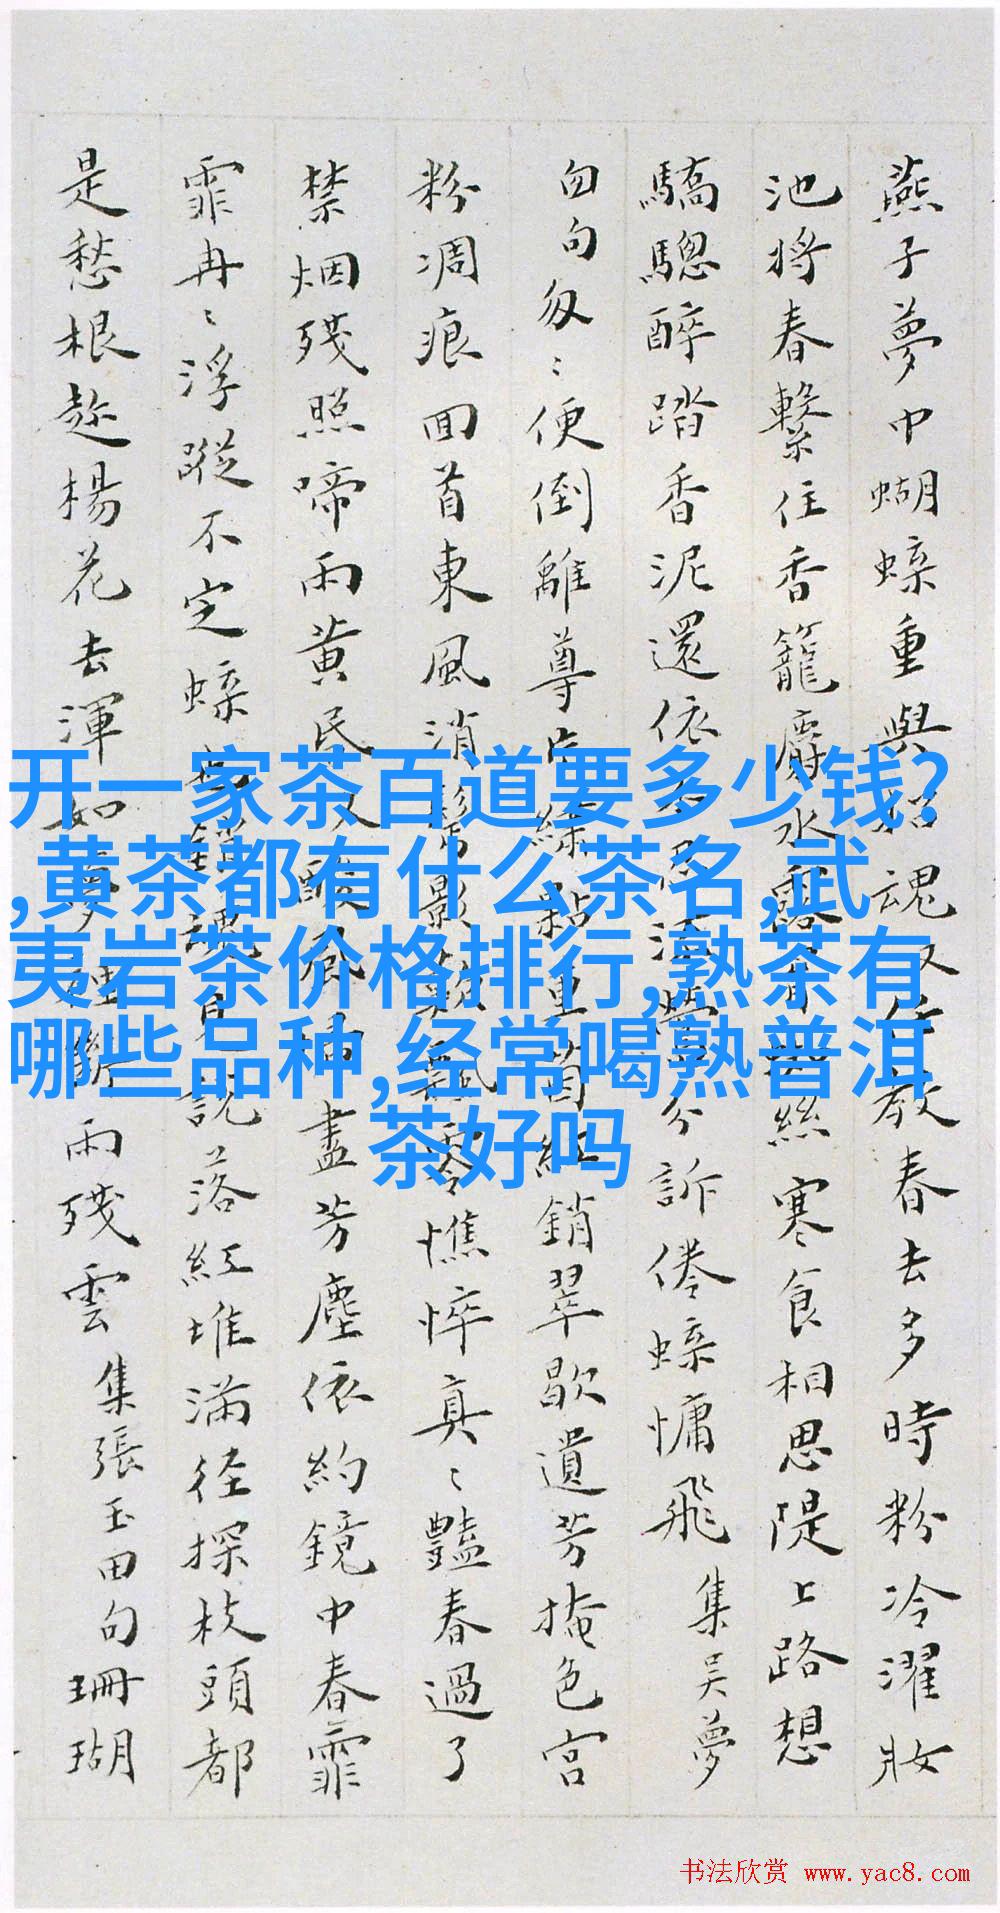 燕子夢中蝴蜨重與招魂教春去多時粉冷濯妝
池將春繫住香籠麝水絲寒食相思隄上路想
驕驄醉踏香泥還依訴倦蜨慵飛集吳夢
匆句匆〻便倒離尊紅銷翠歇遺芳掩色宮
粉凋痕回首東風消鬢影飄零憔悴真〻豔春過了
禁烟殘照啼雨黃昏風盡芳塵依約鏡中春霏
霏冉〻浮蹤不定蜨魂見說落紅堆滿徑探枝頭都
是愁根趁楊花去渾如夢斷雨殘雲集張玉田句珊瑚
开一家茶百道要多少钱?
,黄茶都有什么茶名,武
夷岩茶价格排行,熟茶有
哪些品种,经常喝熟普洱
茶好吗
书法欣赏 www.yac8.com